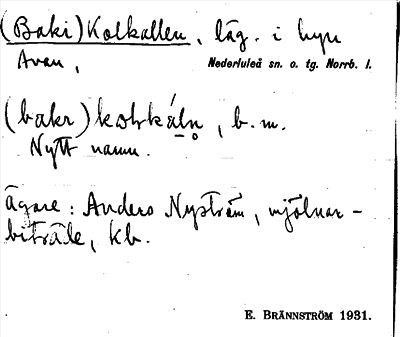 (Baki) Kolkallen, läg. i byn
Avan,
Nederluleå sn. o. tg. Norrb. l.
(bakr) kolkáln, b. m.
Nytt namn.
Ägare: Anders Nyström, mjölnar-
biträde, kb.
E. BRÄNNSTRÖM 1931.